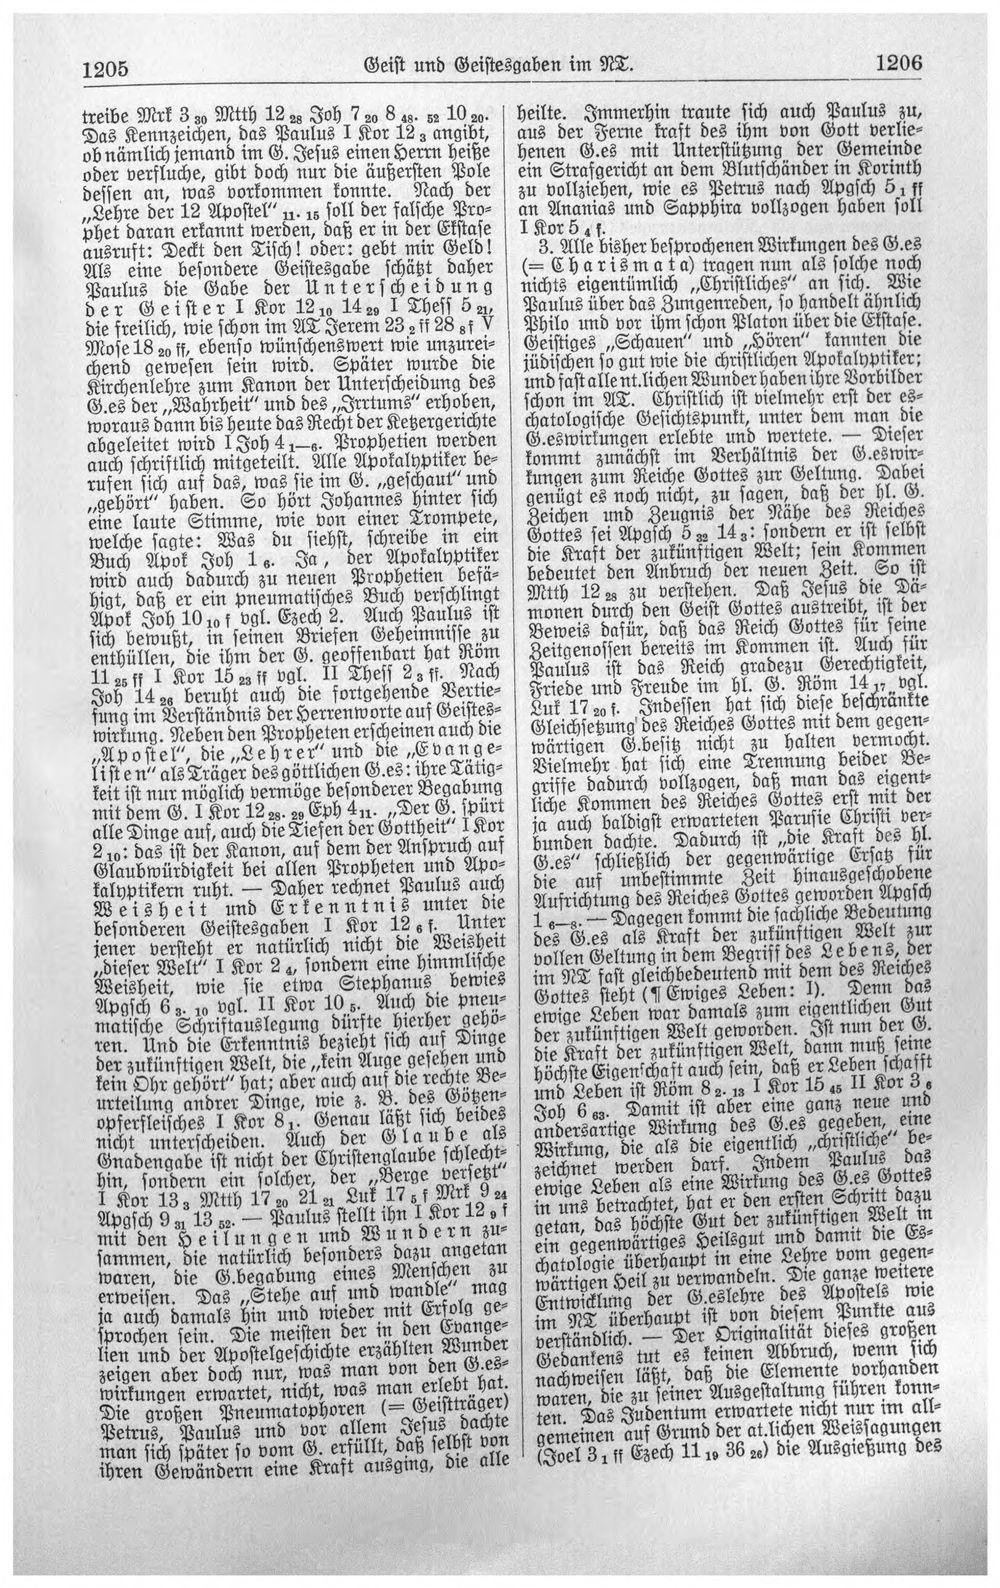 1205
Geist und Geistesgaben im NT.
1206
treibe Mrk 3 30 Mtth 12 28 Joh 7 20 8 48. 52 10 20.
Das Kennzeichen, das Paulus I Kor 12 3 angibt,
ob nämlich jemand im G. Jesus einen Herrn heiße
oder verfluche, gibt doch nur die äußersten Pole
dessen an, was vorkommen konnte. Nach der
„Lehre der 12 Apostel“ 11. 15 soll der falsche Pro-
phet daran erkannt werden, daß er in der Ekstase
ausruft: Deckt den Tisch! oder: gebt mir Geld!
Als eine besondere Geistesgabe schätzt daher
Paulus die Gabe der Unterscheidung
der Geister I Kor 12 10 14 29 I Thess 5 21,
die freilich, wie schon im AT Jerem 23 2 ff 28 8 f V
Mose 18 20 ff, ebenso wünschenswert wie unzurei-
chend gewesen sein wird. Später wurde die
Kirchenlehre zum Kanon der Unterscheidung des
G.es der „Wahrheit“ und des „Irrtums“ erhoben,
woraus dann bis heute das Recht der Ketzergerichte
abgeleitet wird I Joh 4 1—6. Prophetien werden
auch schriftlich mitgeteilt. Alle Apokalyptiker be-
rufen sich auf das, was sie im G. „geschaut“ und
„gehört“ haben. So hört Johannes hinter sich
eine laute Stimme, wie von einer Trompete,
welche sagte: Was du siehst, schreibe in ein
Buch Apok Joh 1 6. Ja, der Apokalyptiker
wird auch dadurch zu neuen Prophetien befä-
higt, daß er ein pneumatisches Buch verschlingt
Apok Joh 10 10 f vgl. Ezech 2. Auch Paulus ist
sich bewußt, in seinen Briefen Geheimnisse zu
enthüllen, die ihm der G. geoffenbart hat Röm
11 25 ff I Kor 15 23 ff vgl. II Thess 2 3 ff. Nach
Joh 14 26 beruht auch die fortgehende Vertie-
fung im Verständnis der Herrenworte auf Geistes-
wirkung. Neben den Propheten erscheinen auch die
„Apostel“, die „Lehrer“ und die „Evange-
listen“ als Träger des göttlichen G.es: ihre Tätig-
keit ist nur möglich vermöge besonderer Begabung
mit dem G. I Kor 12 28. 29 Eph 4 11. „Der G. spürt
alle Dinge auf, auch die Tiefen der Gottheit“ I Kor
2 10: das ist der Kanon, auf dem der Anspruch auf
Glaubwürdigkeit bei allen Propheten und Apo-
kalyptikern ruht. — Daher rechnet Paulus auch
Weisheit und Erkenntnis unter die
besonderen Geistesgaben I Kor 12 6 f. Unter
jener versteht er natürlich nicht die Weisheit
„dieser Welt“ I Kor 2 4, sondern eine himmlische
Weisheit, wie sie etwa Stephanus bewies
Apgsch 6 3. 10 vgl. II Kor 10 5. Auch die pneu-
matische Schriftauslegung dürfte hierher gehö-
ren. Und die Erkenntnis bezieht sich auf Dinge
der zukünftigen Welt, die „kein Auge gesehen und
kein Ohr gehört“ hat; aber auch auf die rechte Be-
urteilung andrer Dinge, wie z. B. des Götzen-
opferfleisches I Kor 8 1. Genau läßt sich beides
nicht unterscheiden. Auch der Glaube als
Gnadengabe ist nicht der Christenglaube schlecht-
hin, sondern ein solcher, der „Berge versetzt“
I Kor 13 3 Mtth 17 20 21 21 Luk 17 5 f Mrk 9 24
Apgsch 9 31 13 52. — Paulus stellt ihn I Kor 12 9 f
mit den Heilungen und Wundern zu-
sammen, die natürlich besonders dazu angetan
waren, die G.begabung eines Menschen zu
erweisen. Das „Stehe auf und wandle“ mag
ja auch damals hin und wieder mit Erfolg ge-
sprochen sein. Die meisten der in den Evange-
lien und der Apostelgeschichte erzählten Wunder
zeigen aber doch nur, was man von den G.es-
wirkungen erwartet, nicht, was man erlebt hat.
Die großen Pneumatophoren (= Geistträger)
Petrus, Paulus und vor allem Jesus dachte
man sich später so vom G. erfüllt, daß selbst von
ihren Gewändern eine Kraft ausging, die alle
heilte. Immerhin traute sich auch Paulus zu,
aus der Ferne kraft des ihm von Gott verlie-
henen G.es mit Unterstützung der Gemeinde
ein Strafgericht an dem Blutschänder in Korinth
zu vollziehen, wie es Petrus nach Apgsch 5 1 ff
an Ananias und Sapphira vollzogen haben soll
I Kor 5 4 f.
3. Alle bisher besprochenen Wirkungen des G.es
(= Charismata) tragen nun als solche noch
nichts eigentümlich „Christliches“ an sich. Wie
Paulus über das Zungenreden, so handelt ähnlich
Philo und vor ihm schon Platon über die Ekstase.
Geistiges „Schauen“ und „Hören“ kannten die
jüdischen so gut wie die christlichen Apokalyptiker;
und fast alle nt.lichen Wunder haben ihre Vorbilder
schon im AT. Christlich ist vielmehr erst der es-
chatologische Gesichtspunkt, unter dem man die
G.eswirkungen erlebte und wertete. — Dieser
kommt zunächst im Verhältnis der G.eswir-
kungen zum Reiche Gottes zur Geltung. Dabei
genügt es noch nicht, zu sagen, daß der hl. G.
Zeichen und Zeugnis der Nähe des Reiches
Gottes sei Apgsch 5 32 14 3: sondern er ist selbst
die Kraft der zukünftigen Welt; sein Kommen
bedeutet den Anbruch der neuen Zeit. So ist
Mtth 12 28 zu verstehen. Daß Jesus die Dä-
monen durch den Geist Gottes austreibt, ist der
Beweis dafür, daß das Reich Gottes für seine
Zeitgenossen bereits im Kommen ist. Auch für
Paulus ist das Reich gradezu Gerechtigkeit,
Friede und Freude im hl. G. Röm 14 17 vgl.
Luk 17 20 f. Indessen hat sich diese beschränkte
Gleichsetzung des Reiches Gottes mit dem gegen-
wärtigen G.besitz nicht zu halten vermocht.
Vielmehr hat sich eine Trennung beider Be-
griffe dadurch vollzogen, daß man das eigent-
liche Kommen des Reiches Gottes erst mit der
ja auch baldigst erwarteten Parusie Christi ver-
bunden dachte. Dadurch ist „die Kraft des hl.
G.es“ schließlich der gegenwärtige Ersatz für
die auf unbestimmte Zeit hinausgeschobene
Aufrichtung des Reiches Gottes geworden Apgsch
1 6—8. — Dagegen kommt die sachliche Bedeutung
des G.es als Kraft der zukünftigen Welt zur
vollen Geltung in dem Begriff des Lebens, der
im NT fast gleichbedeutend mit dem des Reiches
Gottes steht (¶ Ewiges Leben: I). Denn das
ewige Leben war damals zum eigentlichen Gut
der zukünftigen Welt geworden. Ist nun der G.
die Kraft der zukünftigen Welt, dann muß seine
höchste Eigenschaft auch sein, daß er Leben schafft
und Leben ist Röm 8 2. 13 I Kor 15 45 II Kor 3 6
Joh 6 63. Damit ist aber eine ganz neue und
andersartige Wirkung des G.es gegeben, eine
Wirkung, die als die eigentlich „christliche“ be-
zeichnet werden darf. Indem Paulus das
ewige Leben als eine Wirkung des G.es Gottes
in uns betrachtet, hat er den ersten Schritt dazu
getan, das höchste Gut der zukünftigen Welt in
ein gegenwärtiges Heilsgut und damit die Es-
chatologie überhaupt in eine Lehre vom gegen-
wärtigen Heil zu verwandeln. Die ganze weitere
Entwicklung der G.eslehre des Apostels wie
im NT überhaupt ist von diesem Punkte aus
verständlich. — Der Originalität dieses großen
Gedankens tut es keinen Abbruch, wenn sich
nachweisen läßt, daß die Elemente vorhanden
waren, die zu seiner Ausgestaltung führen konn-
ten. Das Judentum erwartete nicht nur im all-
gemeinen auf Grund der at.lichen Weissagungen
(Joel 3 1 ff Ezech 11 19 36 26) die Ausgießung des